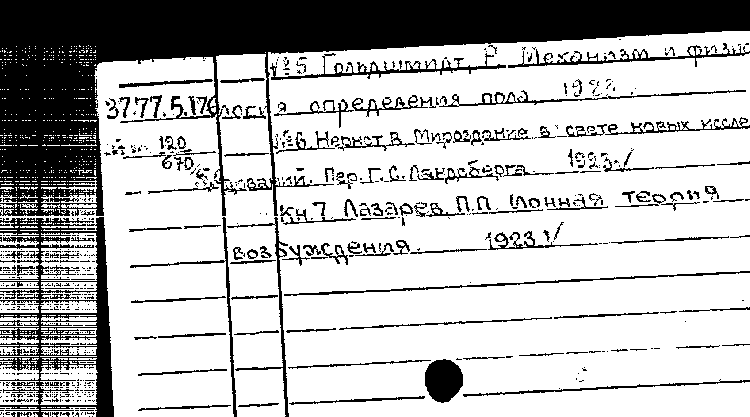 №5 Гольдшмидт, Р. Механизм и физио
37.77.5.176 логия определения пола, 1923.
120 №6 Нернст, В. Мироздание в свете новых иссле
670 дований. Пер. Г.С. Ландсберга. 1923.
Кн.7 Лазарев П.П. Ионная теория
возбуждения. 1923.